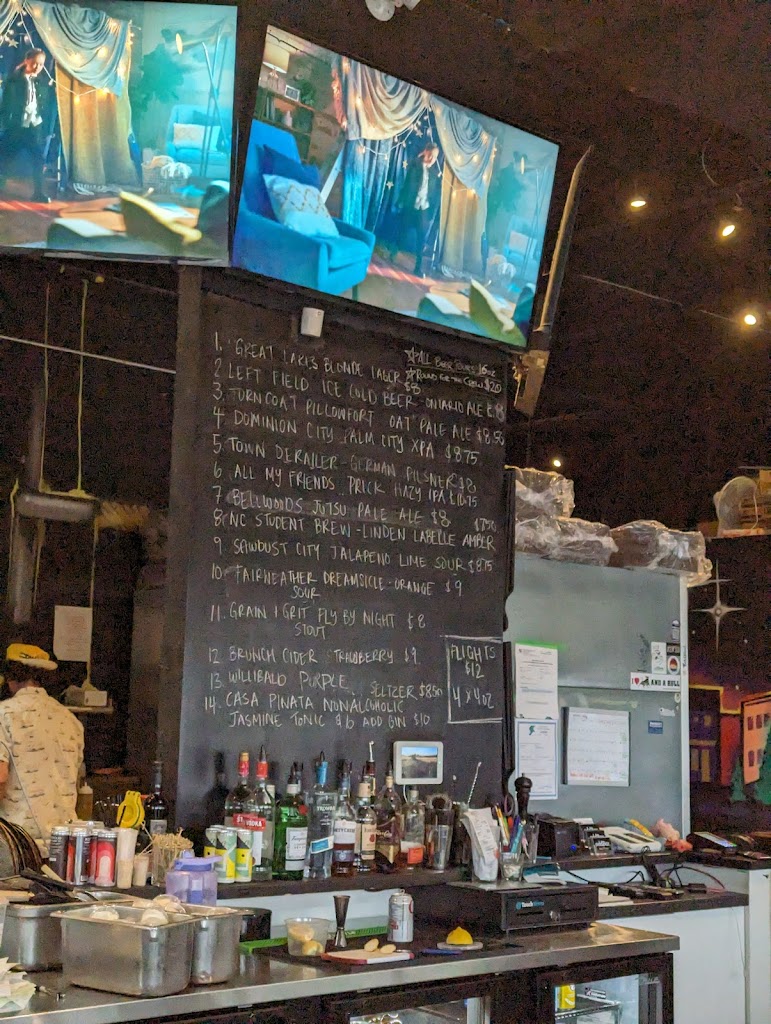 1. GREAT LAKES BLONDE LAGER $8
☆ALL BEER SIZES 16oz
☆ROUND FOR THE CREW $20
2 LEFT FIELD ICE COLD BEER-ONTARIO ALE $8
3. TURNCOAT PILLOWFORT OAT PALE ALE $8.50
4 DOMINION CITY PALM CITY XPA $8.75
5. TOWN DERAILER-GERMAN PILSNER $8
6 ALL MY FRIENDS PRICK HAZY IPA $10.75
7 BELLWOODS JUTSU PALE ALE $8
8 NC STUDENT BREW-LINDEN LABELLE AMBER $7.50
9 SAWDUST CITY JALAPENO LIME SOUR $8.75
10 FAIRWEATHER DREAMSICLE-ORANGE $9
SOUR
11. GRAIN & GRIT FLY BY NIGHT $8
STOUT
12 BRUNCH CIDER STRAWBERRY $9
13 WILLIBALD PURPLE SELTZER $8.50
14. CASA PINATA NONALCOHOLIC
JASMINE TONIC $6 ADD GIN $10
FLIGHTS
$12
4 x 4oz
AND A BULL